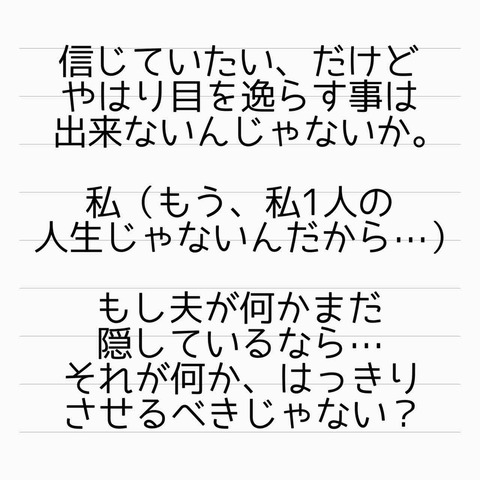 信じていたい、だけど
やはり目を逸らす事は
出来ないんじゃないか。
私（もう、私1人の
人生じゃないんだから…）
もし夫が何かまだ
隠しているなら…
それが何か、はっきり
させるべきじゃない？